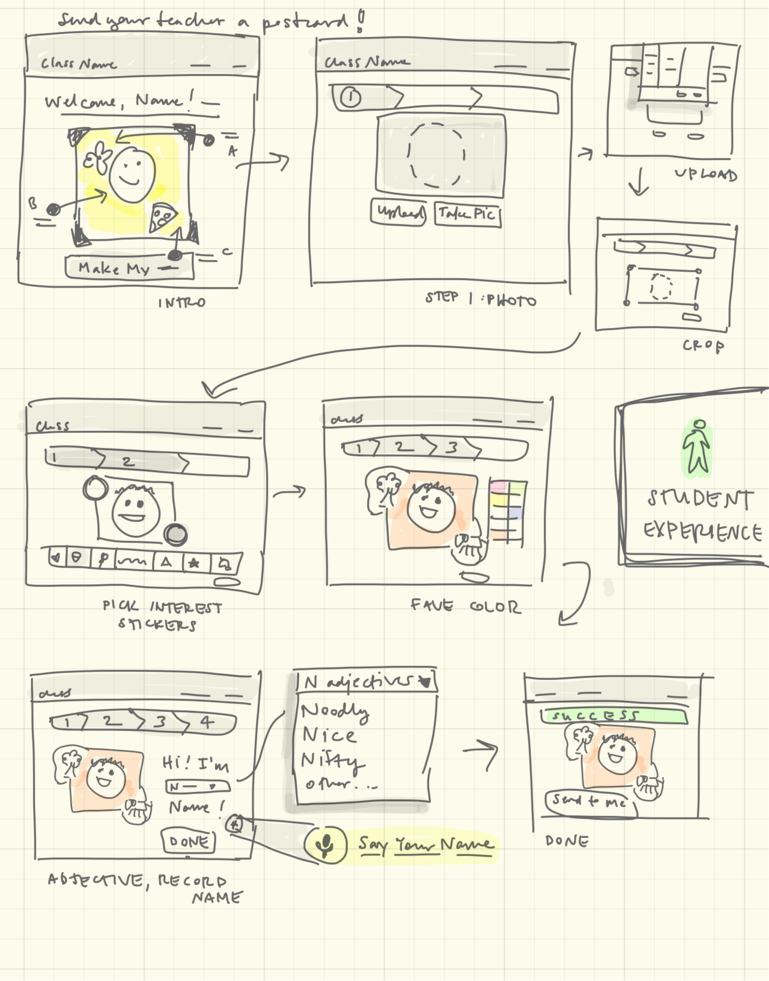 Send your teacher a postcard!
Class Name
Welcome, Name!
A
B
C
Make My
INTRO
Class Name
1
Upload
Take Pic
STEP 1: PHOTO
UPLOAD
CROP
Class
1 2
PICK INTEREST
STICKERS
class
1 2 3
FAVE COLOR
STUDENT
EXPERIENCE
class
1 2 3 4
Hi! I'm
N
Name!
DONE
ADJECTIVE, RECORD
NAME
N adjectives
Noodly
Nice
Nifty
other...
Say Your Name
SUCCESS
Send to me
DONE